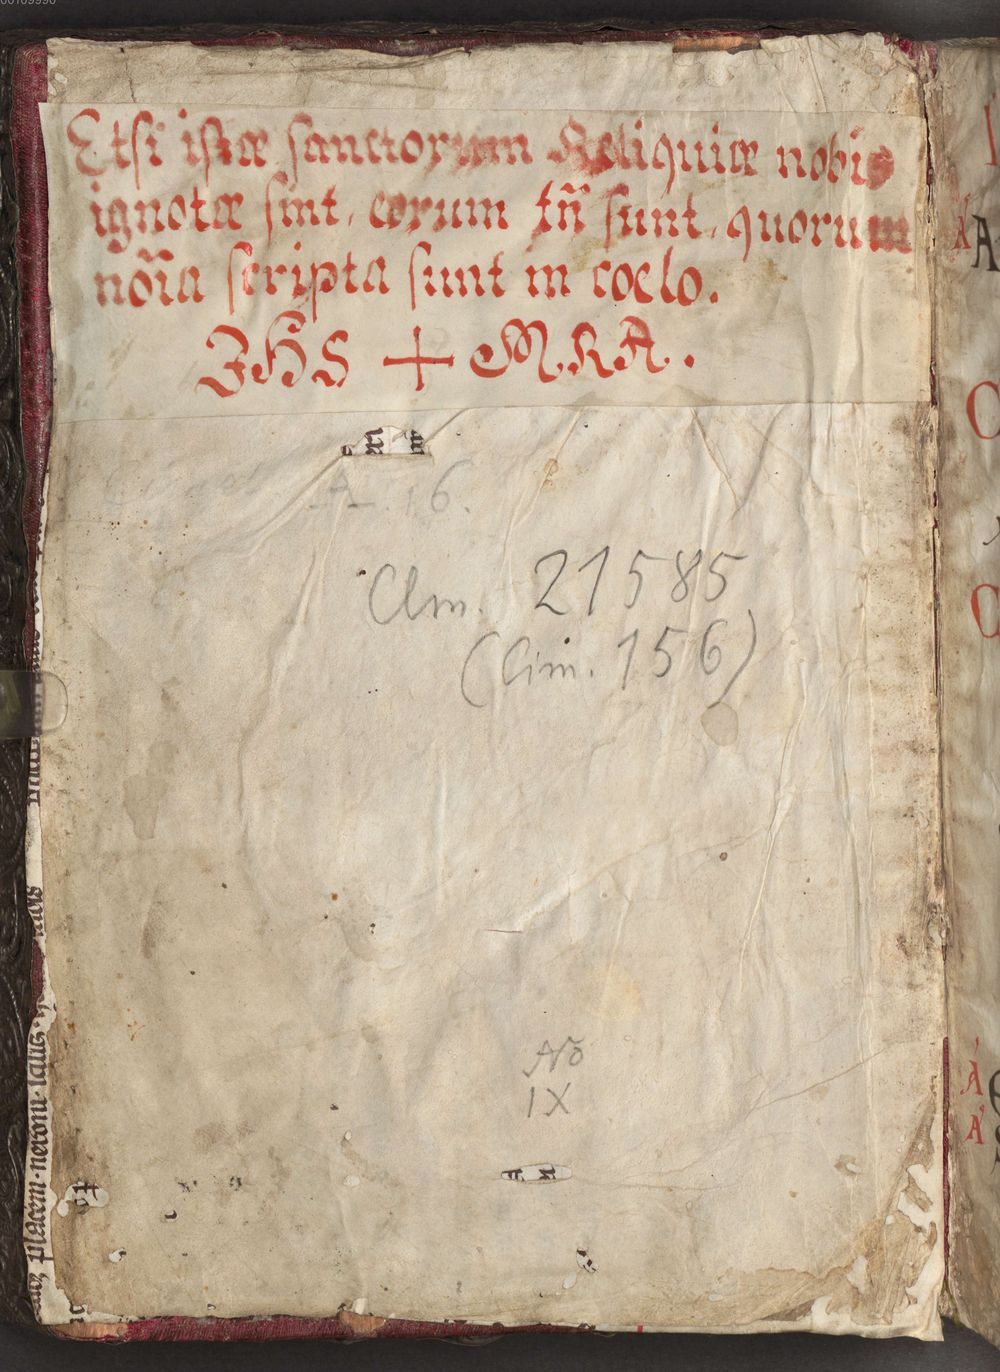 00109990
Etsi istæ sanctorum Reliquiæ nobis
ignotæ sint, eorum tn̄ sunt, quorum
nōīa scripta sunt in coelo.
JHS + M.R.A.
A. 16.
Clm. 21585
(Cim. 156)
No
IX
placem · neroni · laus ·